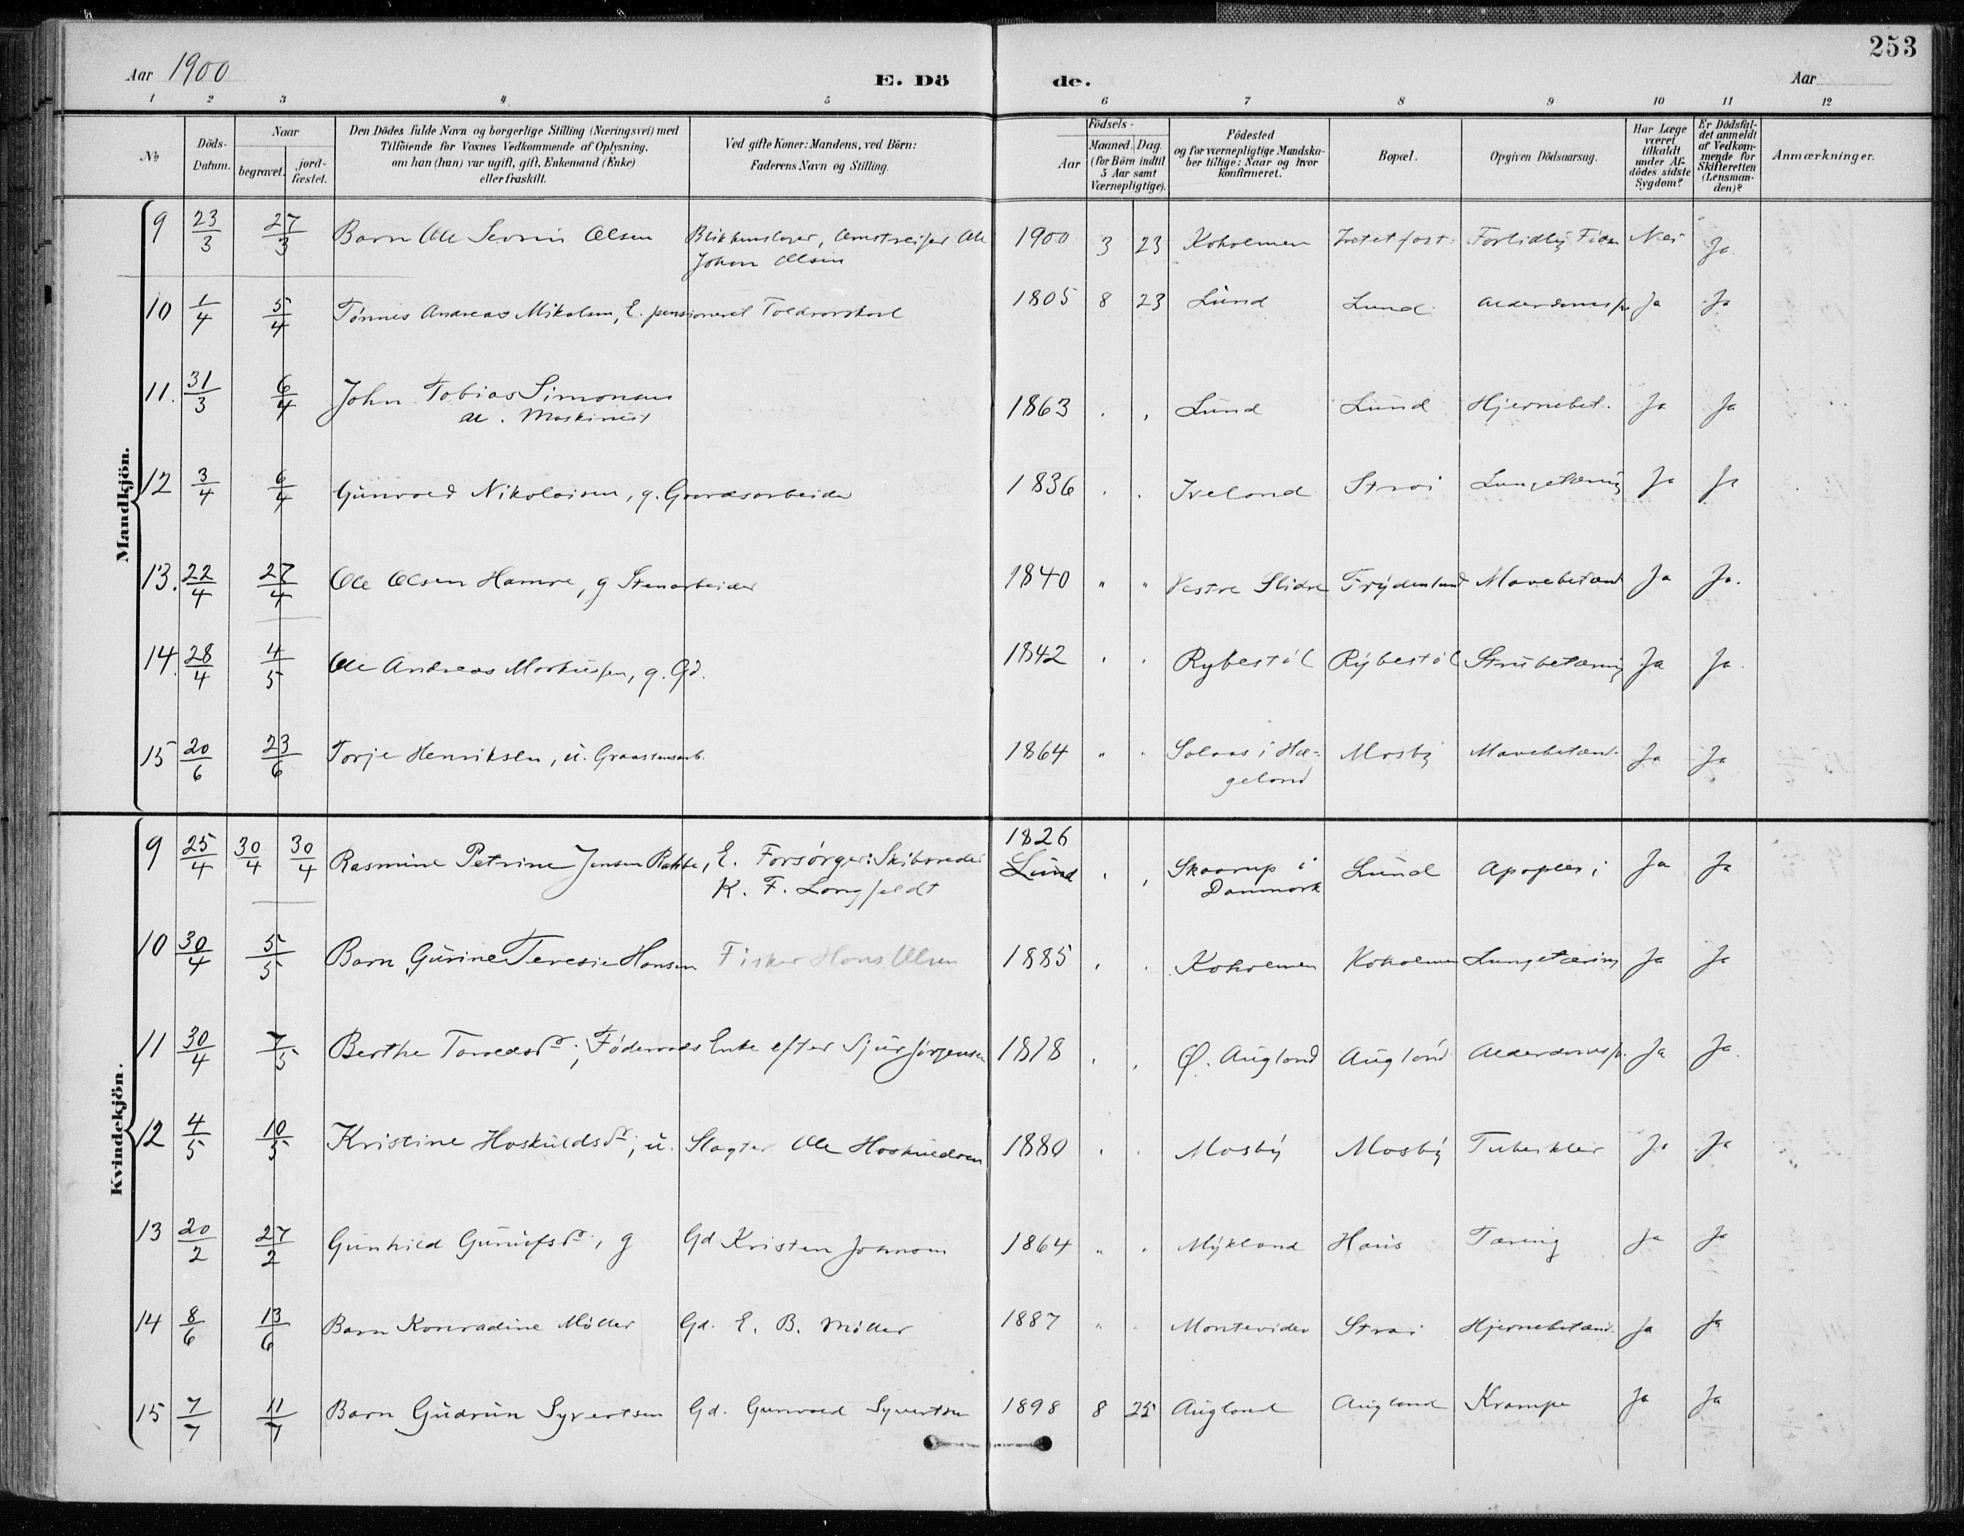 253
Aar 1900 E. Dö de. Aar
1 2 3 4 5 6 7 8 9 10 11 12
№
Döds-Datum.
Naar
begravet.
jordfæstet.
Den Dödes fulde Navn og borgerlige Stilling (Næringsvei) med
Tilföiende for Voxnes Vedkommende af Oplysning,
om han (hun) var ugift, gift, Enkemand (Enke)
eller fraskilt.
Ved gifte Koner: Mandens, ved Börn:
Faderens Navn og Stilling.
Födsels-
Aar
Maaned. Dag.
(for Börn indtil
5 Aar samt
Værnepligtige).
Födested
og for værnepligtige Mandskaber tillige: Naar og hvor
konfirmeret.
Bopæl.
Opgiven Dödsaarsag.
Har Læge
været
tilkaldt
under Afdödes sidste
Sygdom?
Er Dödsfaldet anmeldt
af Vedkommende for
Skifteretten
(Lensmanden)?
Anmærkninger.
Mandkjön.
9 23/3 27/3 Barn Ole Olsen Ole 1900 3 23 Koholmen Nei Ja.
Johan Olsen
10 1/4 5/4 Tönnes Andreas E. pensioneret 1805 8 23 Lund Lund Ja Ja
11. 31/3 6/4 John Tobias Simonsen 1863 . , Lund Lund Hjernebet. Ja Ja
Maskinist
12 3/4 6/4 Gunvald Nikolaisen, g. Gaardsarbeider 1836 . . Iveland Strai Lungetæring Ja Ja
13. 22/4 27/4 Ole Olsen Hamre, g Stenarbeider 1840 " " Vestre Slidre Frydenlund Mavebetænd Ja Ja.
14. 28/4 4/5 Ole Andreas Markussen, g. Gd. 1842 . . Rybestöl Rybestöl Strubetæring Ja Ja.
15 20/6 23/6 Torje Henriksen, u. 1864 " . Solaas i Hægeland Mosby Mavebetænd. Ja Ja
Kvindekjön.
9 25/4 30/4 30/4 Rasmine Petrine Jensen E. Forsørger: Skibsreder 1826
Lund . , Skaarup i Lund Apoplexi Ja Ja
K. F. Langfeldt Danmark
10 30/4 5/5 Barn Gurine Teresie Hansen Fisker Hans Olsen 1885 . . Koholmen Koholmen Lungetæring Ja Ja
11 30/4 7/5 Berthe Føderaads Enke efter Sjur Jørgensen 1818 . . Ø. Augland Augland Ja Ja.
12 4/5 10/5 Kristine Haskuldsdr.; u. Slagter Ole Haskuldsen 1880 . . Mosby Mosby Tuberkler Ja Ja
13 20/2 27/2 Gunhild g Gd Kristen 1864 " . Mykland Haus Tæring Ja Ja
14 8/6 13/6 Barn Konradine Möller Gd. E. B. Möller 1887 " . Montevideo Strai Hjernebetænd. Ja Ja
15 7/7 11/7 Barn Gudrun Syvertsen Gd. Gunvald Syvertsen 1898 8 25 Augland Augland Krampe Ja Ja